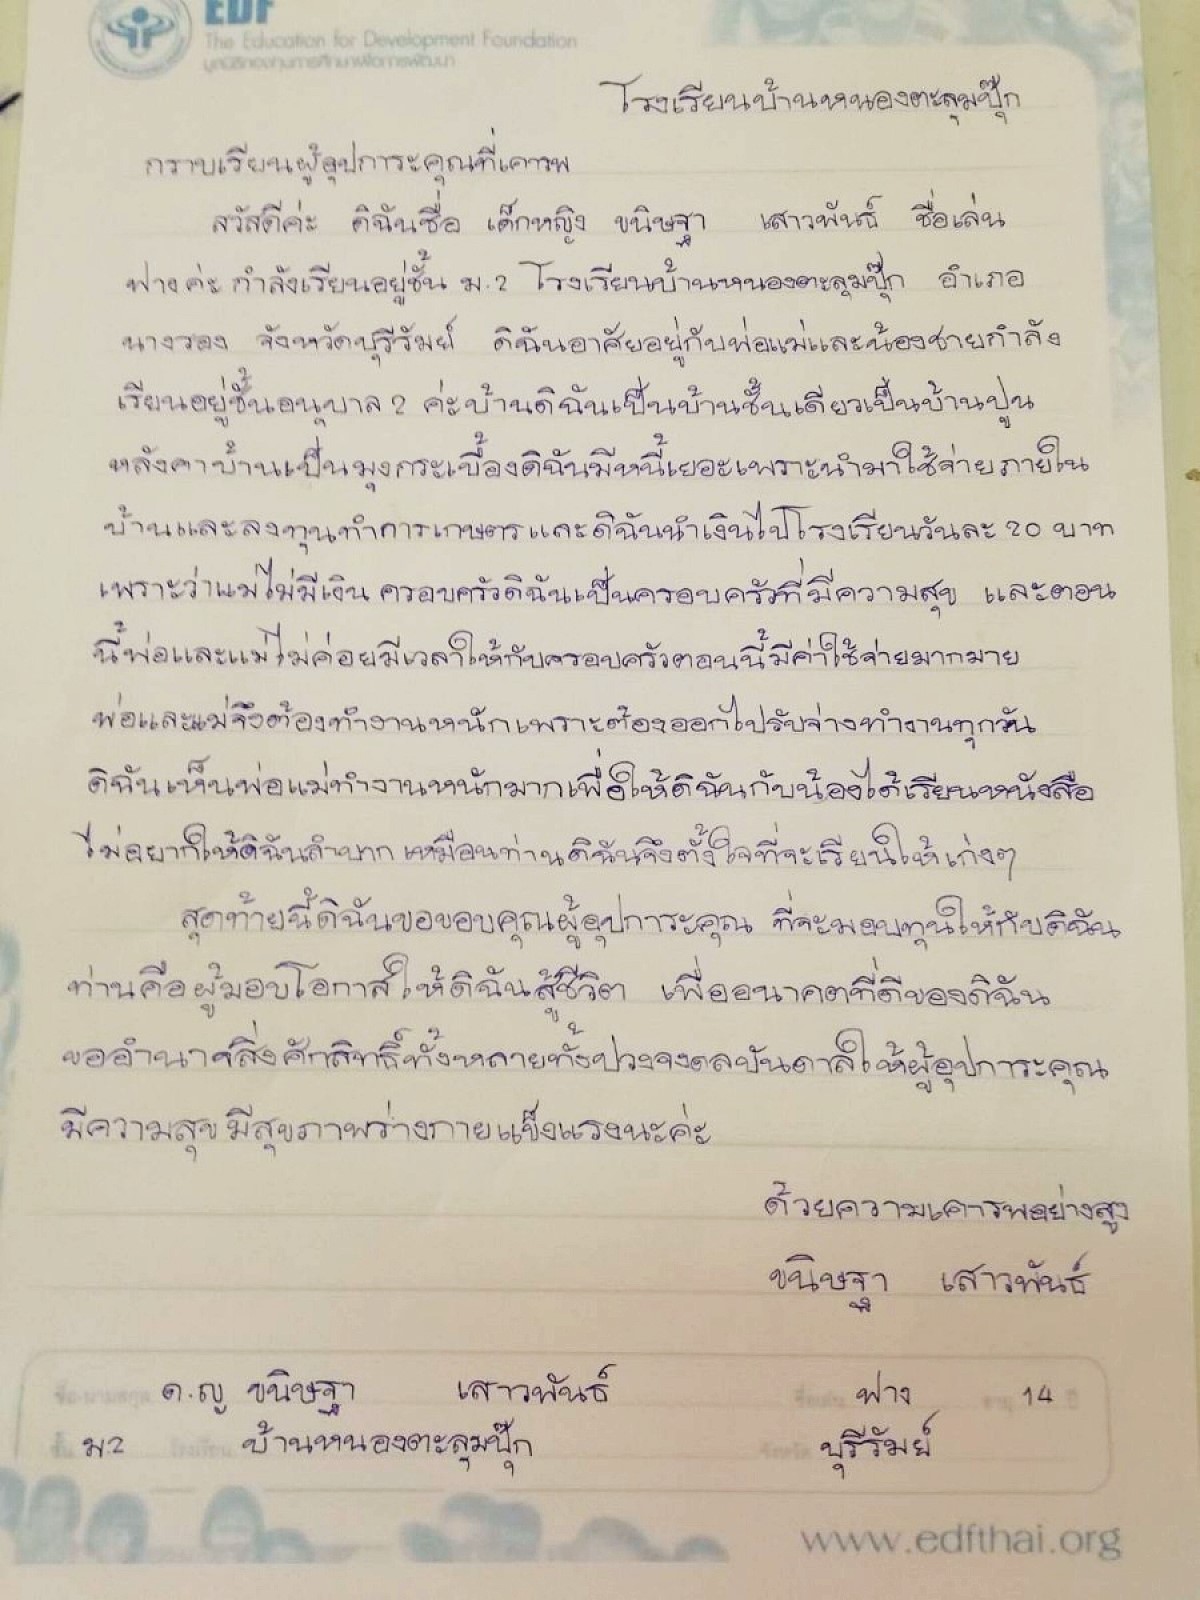 EDF
The Education for Development Foundation
มูลนิธิกองทุนการศึกษาเพื่อการพัฒนา
โรงเรียนบ้านหนองตะลุมปุ๊ก
กราบเรียนผู้อุปการะคุณที่เคารพ
สวัสดีค่ะ ดิฉันชื่อ เด็กหญิง ขนิษฐา เสาวพันธ์ ชื่อเล่น
ฟางค่ะ กำลังเรียนอยู่ชั้น ม.2 โรงเรียนบ้านหนองตะลุมปุ๊ก อำเภอ
นางรอง จังหวัดบุรีรัมย์ ดิฉันอาศัยอยู่กับพ่อแม่และน้องชายกำลัง
เรียนอยู่ชั้นอนุบาล 2 ค่ะบ้านดิฉันเป็นบ้านชั้นเดียวเป็นบ้านปูน
หลังคาบ้านเป็นมุงกระเบื้องดิฉันมีหนี้เยอะเพราะนำมาใช้จ่ายภายใน
บ้านและลงทุนทำการเกษตรและดิฉันนำเงินไปโรงเรียนวันละ 20 บาท
เพราะว่าแม่ไม่มีเงิน ครอบครัวดิฉันเป็นครอบครัวที่มีความสุข และตอน
นี้พ่อและแม่ไม่ค่อยมีเวลาให้กับครอบครัวตอนนี้มีค่าใช้จ่ายมากมาย
พ่อและแม่จึงต้องทำงานหนักเพราะต้องออกไปรับจ่างทำงานทุกวัน
ดิฉันเห็นพ่อแม่ทำงานหนักมากเพื่อให้ดิฉันกับน้องได้เรียนหนังสือ
ไม่อยากให้ดิฉันลำบาก เหมือนท่านดิฉันจึงตั้งใจที่จะเรียนให้เก่งๆ
สุดท้ายนี้ดิฉันขอขอบคุณผู้อุปการะคุณ ที่จะมอบทุนให้กับดิฉัน
ท่านคือผู้มอบโอกาสให้ดิฉันสู้ชีวิต เพื่ออนาคตที่ดีของดิฉัน
ขออำนาจสิ่งศักสิทธิ์ทั้งหลายทั้งปวงจงดลบันดาลให้ผู้อุปการะคุณ
มีความสุข มีสุขภาพร่างกายแข็งแรงนะค่ะ
ด้วยความเคารพอย่างสูง
ขนิษฐา เสาวพันธ์
ชื่อ-นามสกุล ด.ญ ขนิษฐา เสาวพันธ์ ชื่อเล่น ฟาง อายุ 14 ปี
ชั้น ม2 โรงเรียน บ้านหนองตะลุมปุ๊ก จังหวัด บุรีรัมย์
www.edfthai.org